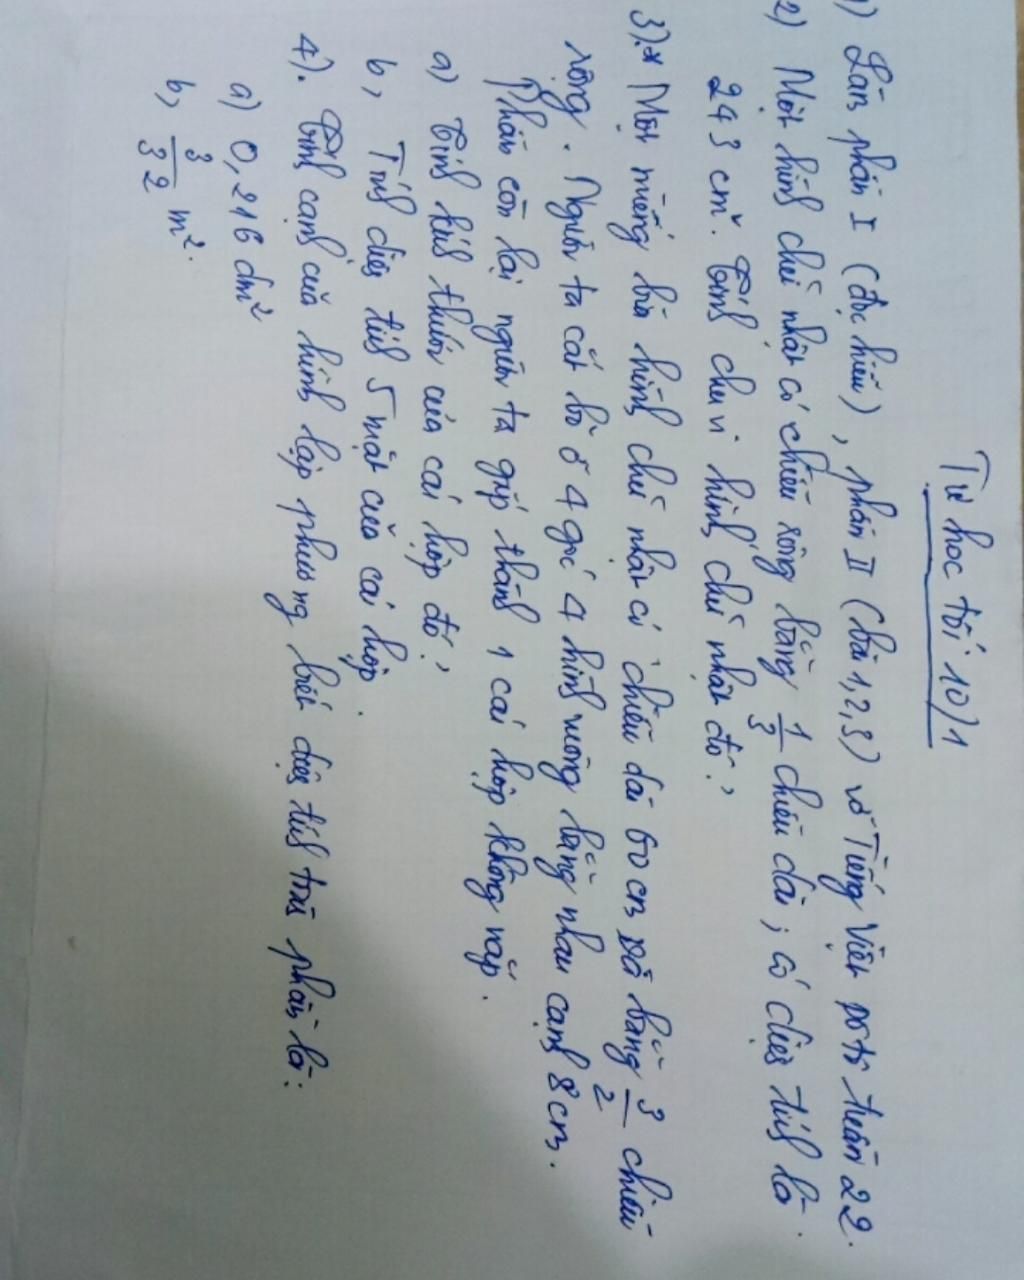 Tự học tối 10/1
1) Làm phần I (đọc hiểu), phần II (bài 1,2,3) vở Tiếng Việt PTTN tuần 22.
2) Một hình chữ nhật có chiều rộng bằng 1/3 chiều dài; có diện tích là
243 cm². Tính chu vi hình chữ nhật đó?
3)* Một miếng bìa hình chữ nhật có chiều dài 60 cm và bằng 3/2 chiều
rộng. Người ta cắt bỏ ở 4 góc 4 hình vuông bằng nhau cạnh 8 cm.
Phần còn lại người ta gấp thành 1 cái hộp không nắp.
a) Tính kích thước của cái hộp đó?
b, Tính diện tích 5 mặt của cái hộp.
4). Tính cạnh của hình lập phương biết diện tích toàn phần là:
a) 0,216 dm²
b, 3/32 m².